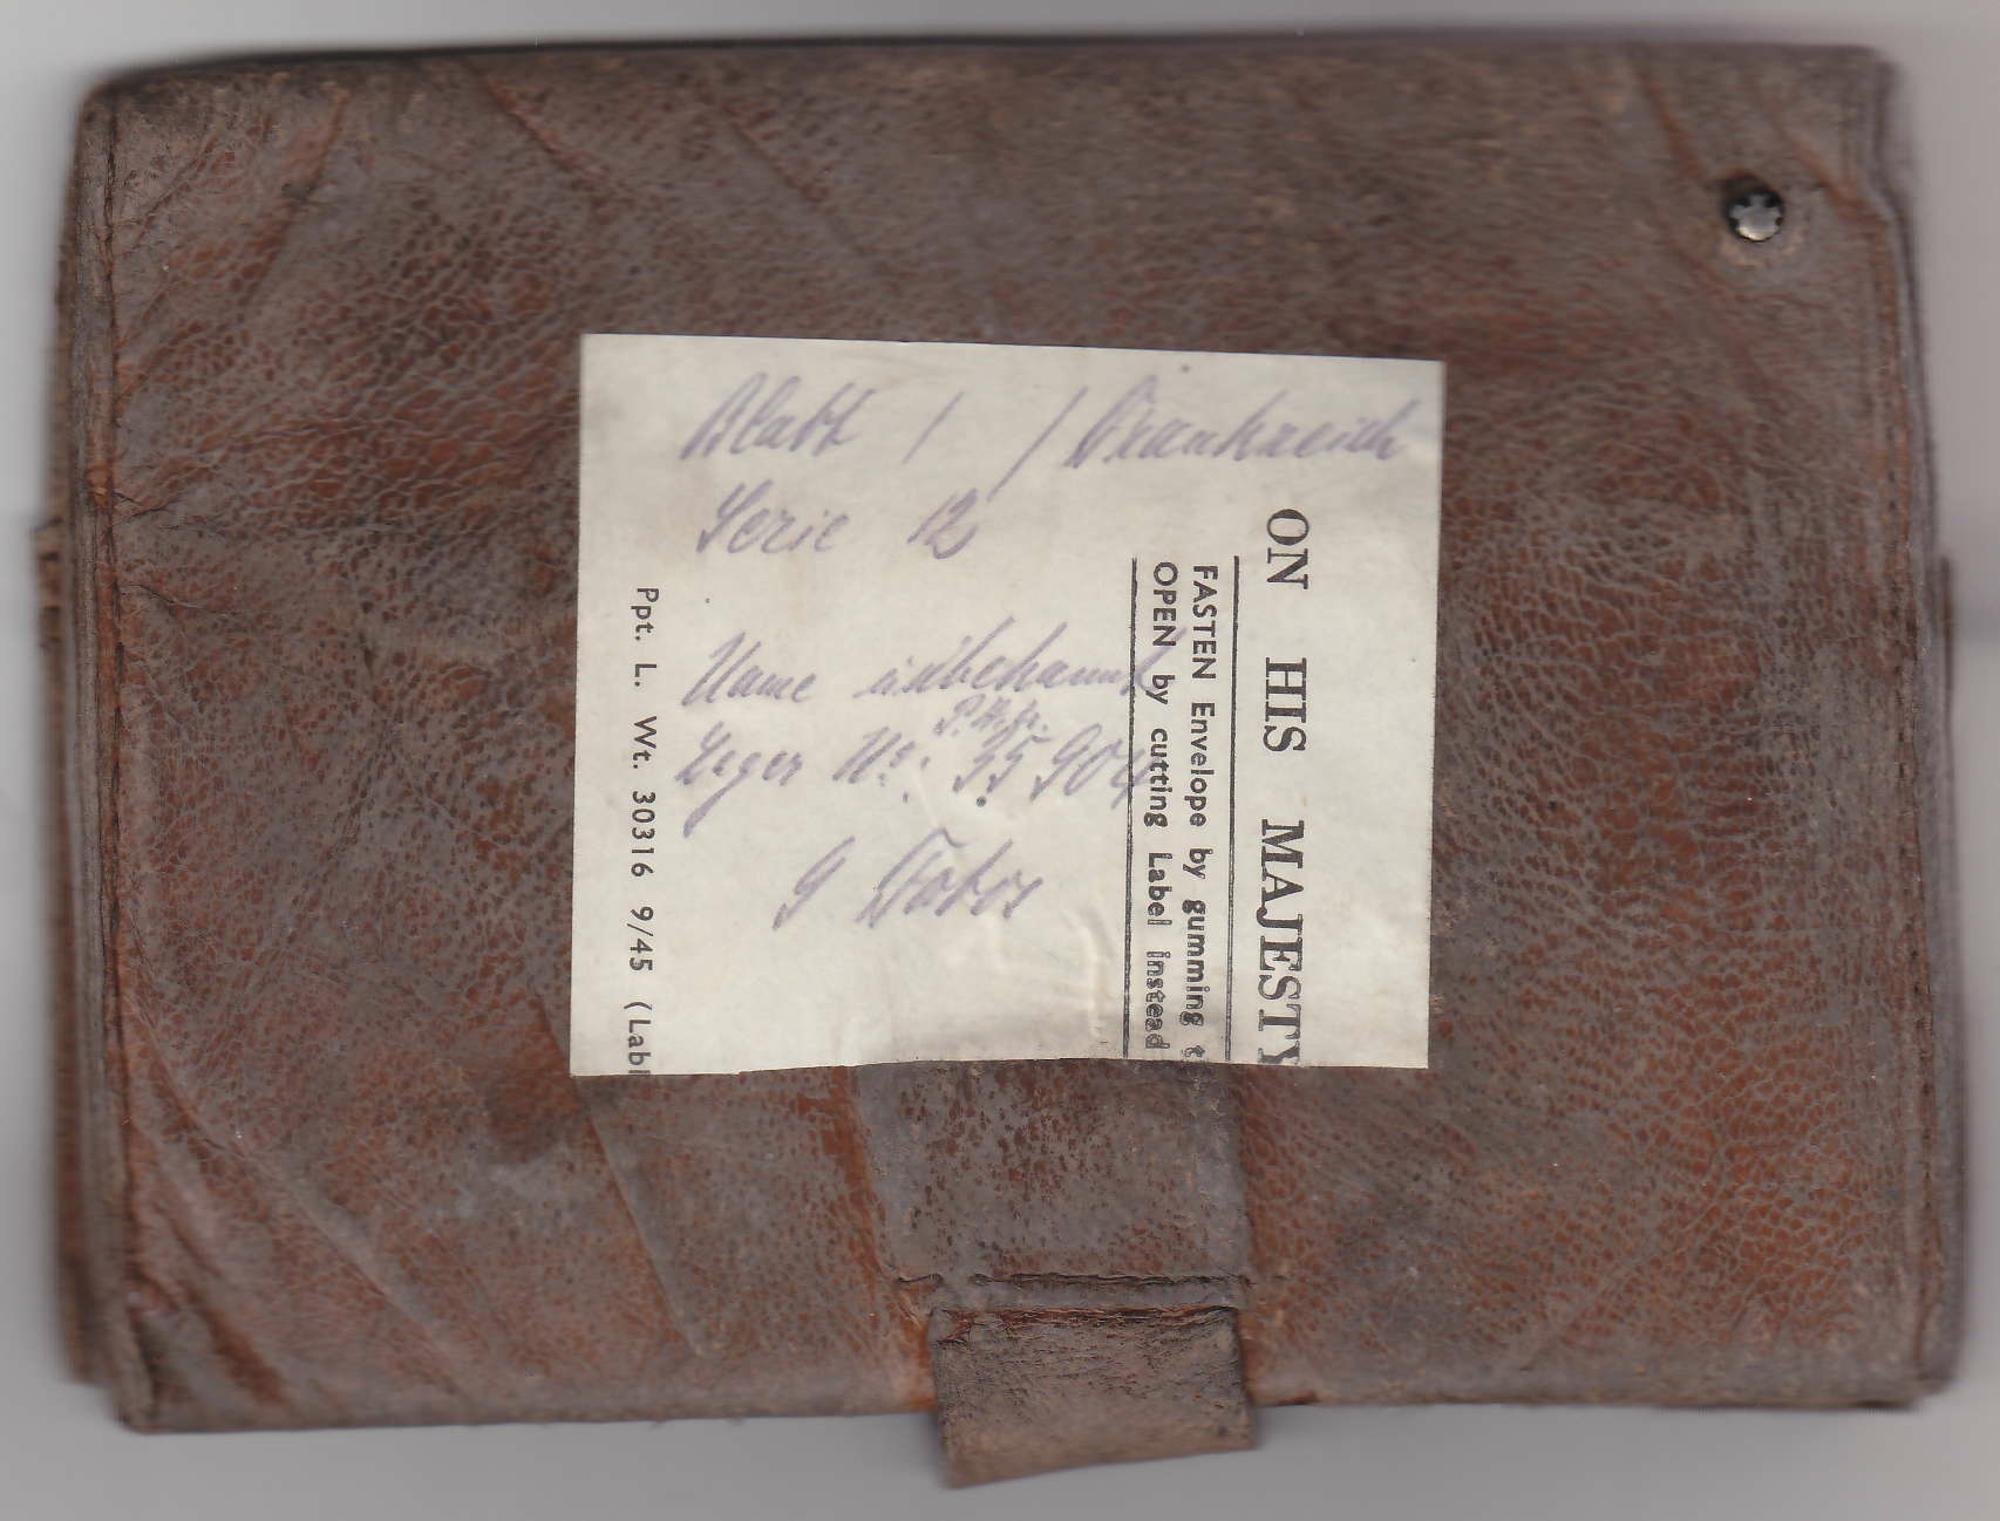 Blatt 1 / Frankreich
Serie 12
Name unbekannt
Lager No.: 35904
9 Fotos
ON HIS MAJESTY
FASTEN Envelope by gumming t
OPEN by cutting Label instead
Ppt. L. Wt. 30316 9/45 (Labl